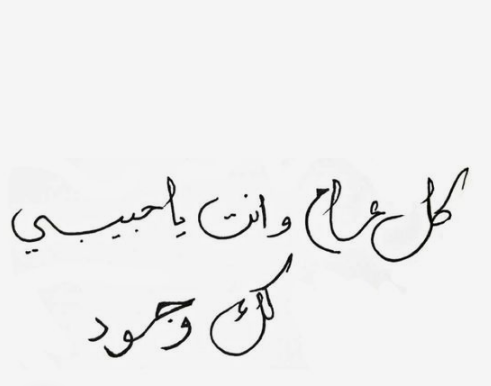 كل عام وانت ياحبيبي
لك وجود